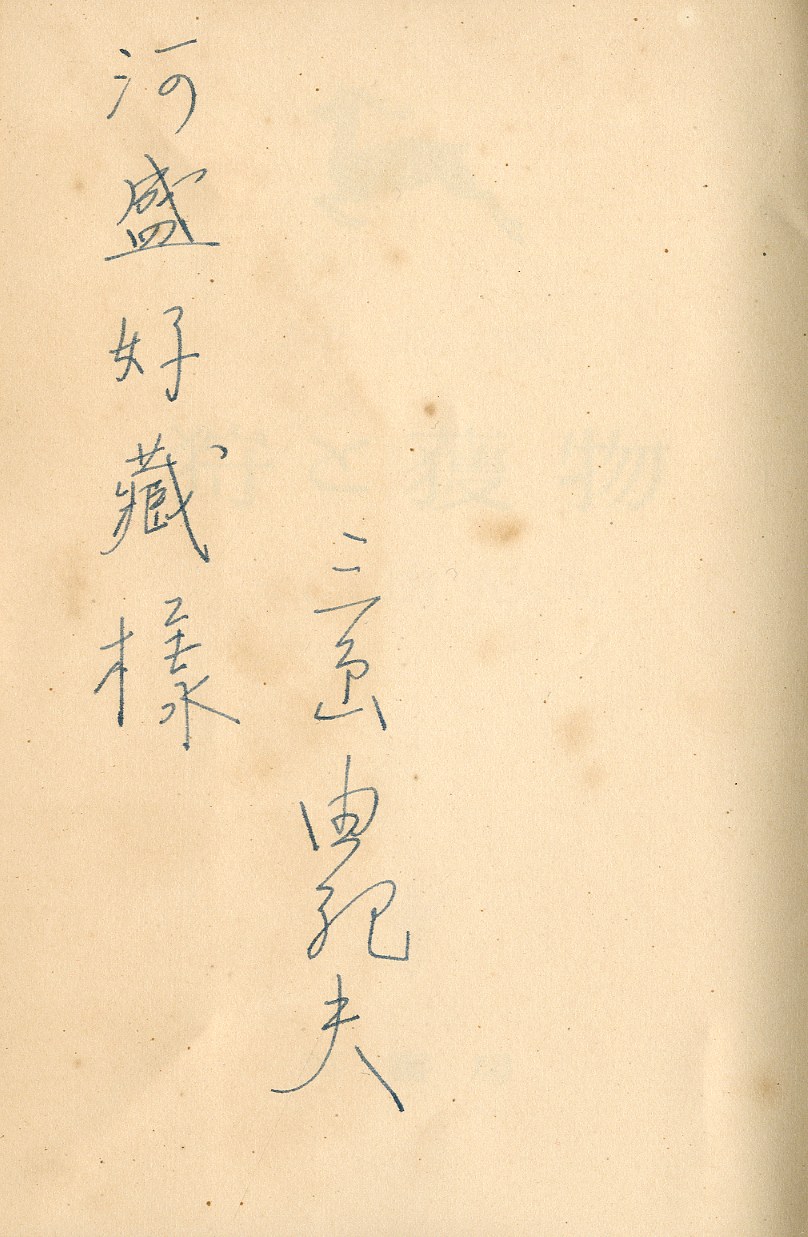 三島由紀夫
河盛好藏樣